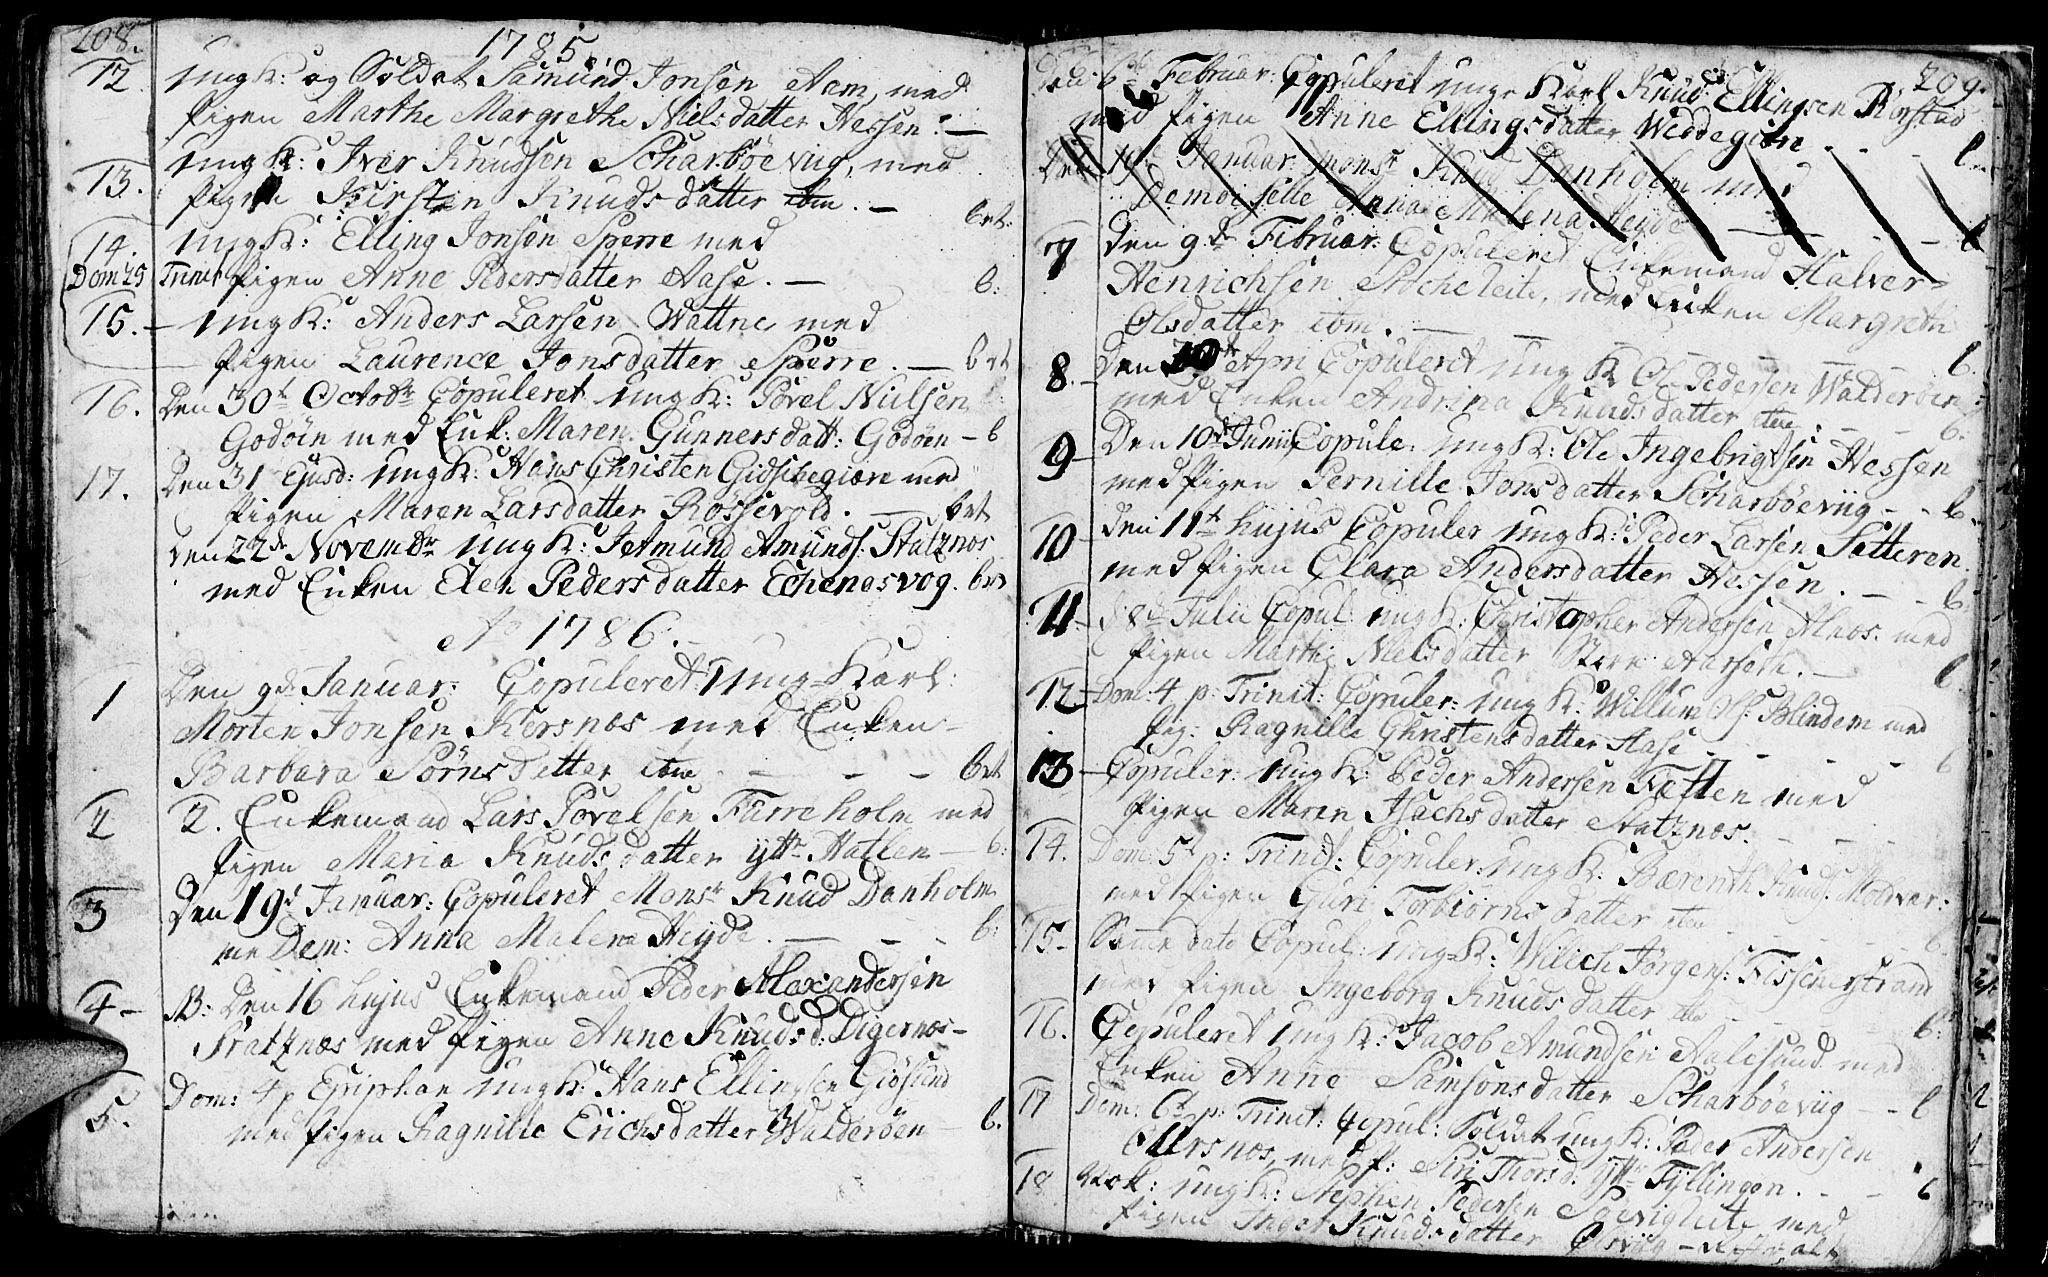 208.
1785.
12. ungK: og Soldat Samund Jonsen Aam, med
Pigen Marthe Margrethe Nielsdatter Hessen. —
13. ungK: Iver Knudsen Scharböevug, med
Pigen Kirsten Knudsdatter ibm. — bet:
14. ungK: Elling Jonsen Sperre med
Dom 25 Trinit Pigen Anne Pedersdatter Aase. — b:
15. — ungK: Anders Larsen Wattne med
Pigen Laurence Jonsdatter Sperre. — bet
16. Den 30t Octobr Copuleret ungK: Povel Nielsen
Godöen med Enk: Maren Gunnersdatt: Godöen — b
17. Den 31 Ejusd: ungK: Hans Christen Gidskegiære med
Pigen Maren Larsdatter Rössevold. — bet
Den 22de Novembr ungK: Jetmund Amunds: Statznos
med Enken Elen Pedersdatter Echenosvog. bet
Ao 1786.
1 Den 9d. Januar: Copuleret Ung=Karl:
Morten Jonsen Kersnos med Enken
Barbara Sörnsdatter ibm. — — — bet
2 2. Enkemand Lars Povelsen Furreholm med
Pigen Maria Knudsdatter yttr Hatlen — b:
3 Den 19d Januar: Copuleret Monsr Knud Danholm
me Dem: Anna Malena Heyde. — — - b:
4 — NB: Den 16 hujus Enkemand Peder Alexandersen
Stratznæs med Pigen Anne Knudsd: Digernos —
5. Dom: 4 p Epiphan ungK: Hans Ellingsen Giösund
med Pigen Ragnille Erichsdatter Walderöen — b.
209.
6te Februar: Copuleret unge Karl Knud Ellingsen Rörstad
med Pigen Anne Ellingsdatter Weddegiön - - - b
Den 19d Januar Monsr Knud Danholm med
Demoiselle Anna Malena Heyde — - - b
7 Den 9de Februar: Copuleret Enkemand Halver=
Henrichsen med Enken Margrethe
Olsdatter ibm. — — — — — b.
8. — Den Apri Copuleret ungK Ole Pedersen Walderöen
med Enken Andrina Knudsdatter ibm. - - - b.
9 — Den 10d Junii Copule: ungK: Ole Ingebrigtsen Hessen
med Pigen Pernille Jonsdatter Scharböeviig - - b.
10 — Den 11t hujus Copuler ungK: Peder Larsen Sætteren
med Pigen Clara Andersdatter Hessen. — - b
11 — d 8d Julii Copul: ungK: Christopher Andersen Alnos. med
Pigen Marthe Nielsdatter Store Aarseth. — b.
12 — Dom: 4 p: Trinit: Copuler: ungK: Willum Ols: Blindem med
Pig: Ragnille Christensdatter Aase - - - - b
13 — Copuler: ungK: Peder Andersen Fætten med
Pigen Maren Isachsdatter Statznos. - - -
14. Dom: 5t p: Trinit: Copuler: ungK: Bærenth Knuds: Molvær:
med Pigen Guri Torbiörnsdatter ibm - - - - b
15. Samme dato Copul: ungK: Willich Jörgens: Fissenstrand
med Pigen Ingeborg Knudsdatter ibm - - -
16. Copuleret ungK: Jacob Amundsen Aalesund med b:
Enken Anne Samsonsdatter Scharböeviig - - b
17 Dom: 6t p: Trinit: Copul: Soldat ungK: Peder Andersen
med P: Siri Thorsd: yttr Fyllingen. - - b
18 ungK: Stephen Pedersen med
Pigen Inger Knudsdatter